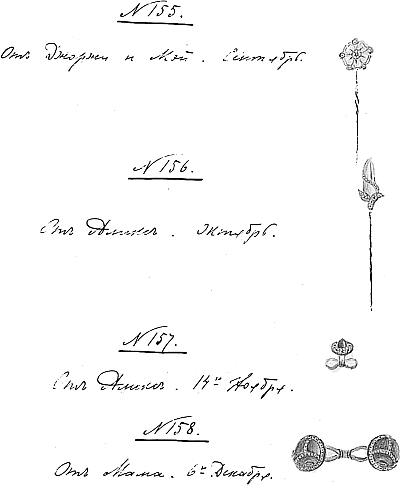 N 155.
Отъ Джоржи и Мэй. Сентябрь.
N 156.
Отъ Аликсъ. Октябрь.
N 157.
Отъ Аликсъ. 14го Ноября.
N 158.
Отъ Мама. 6го Декабря.